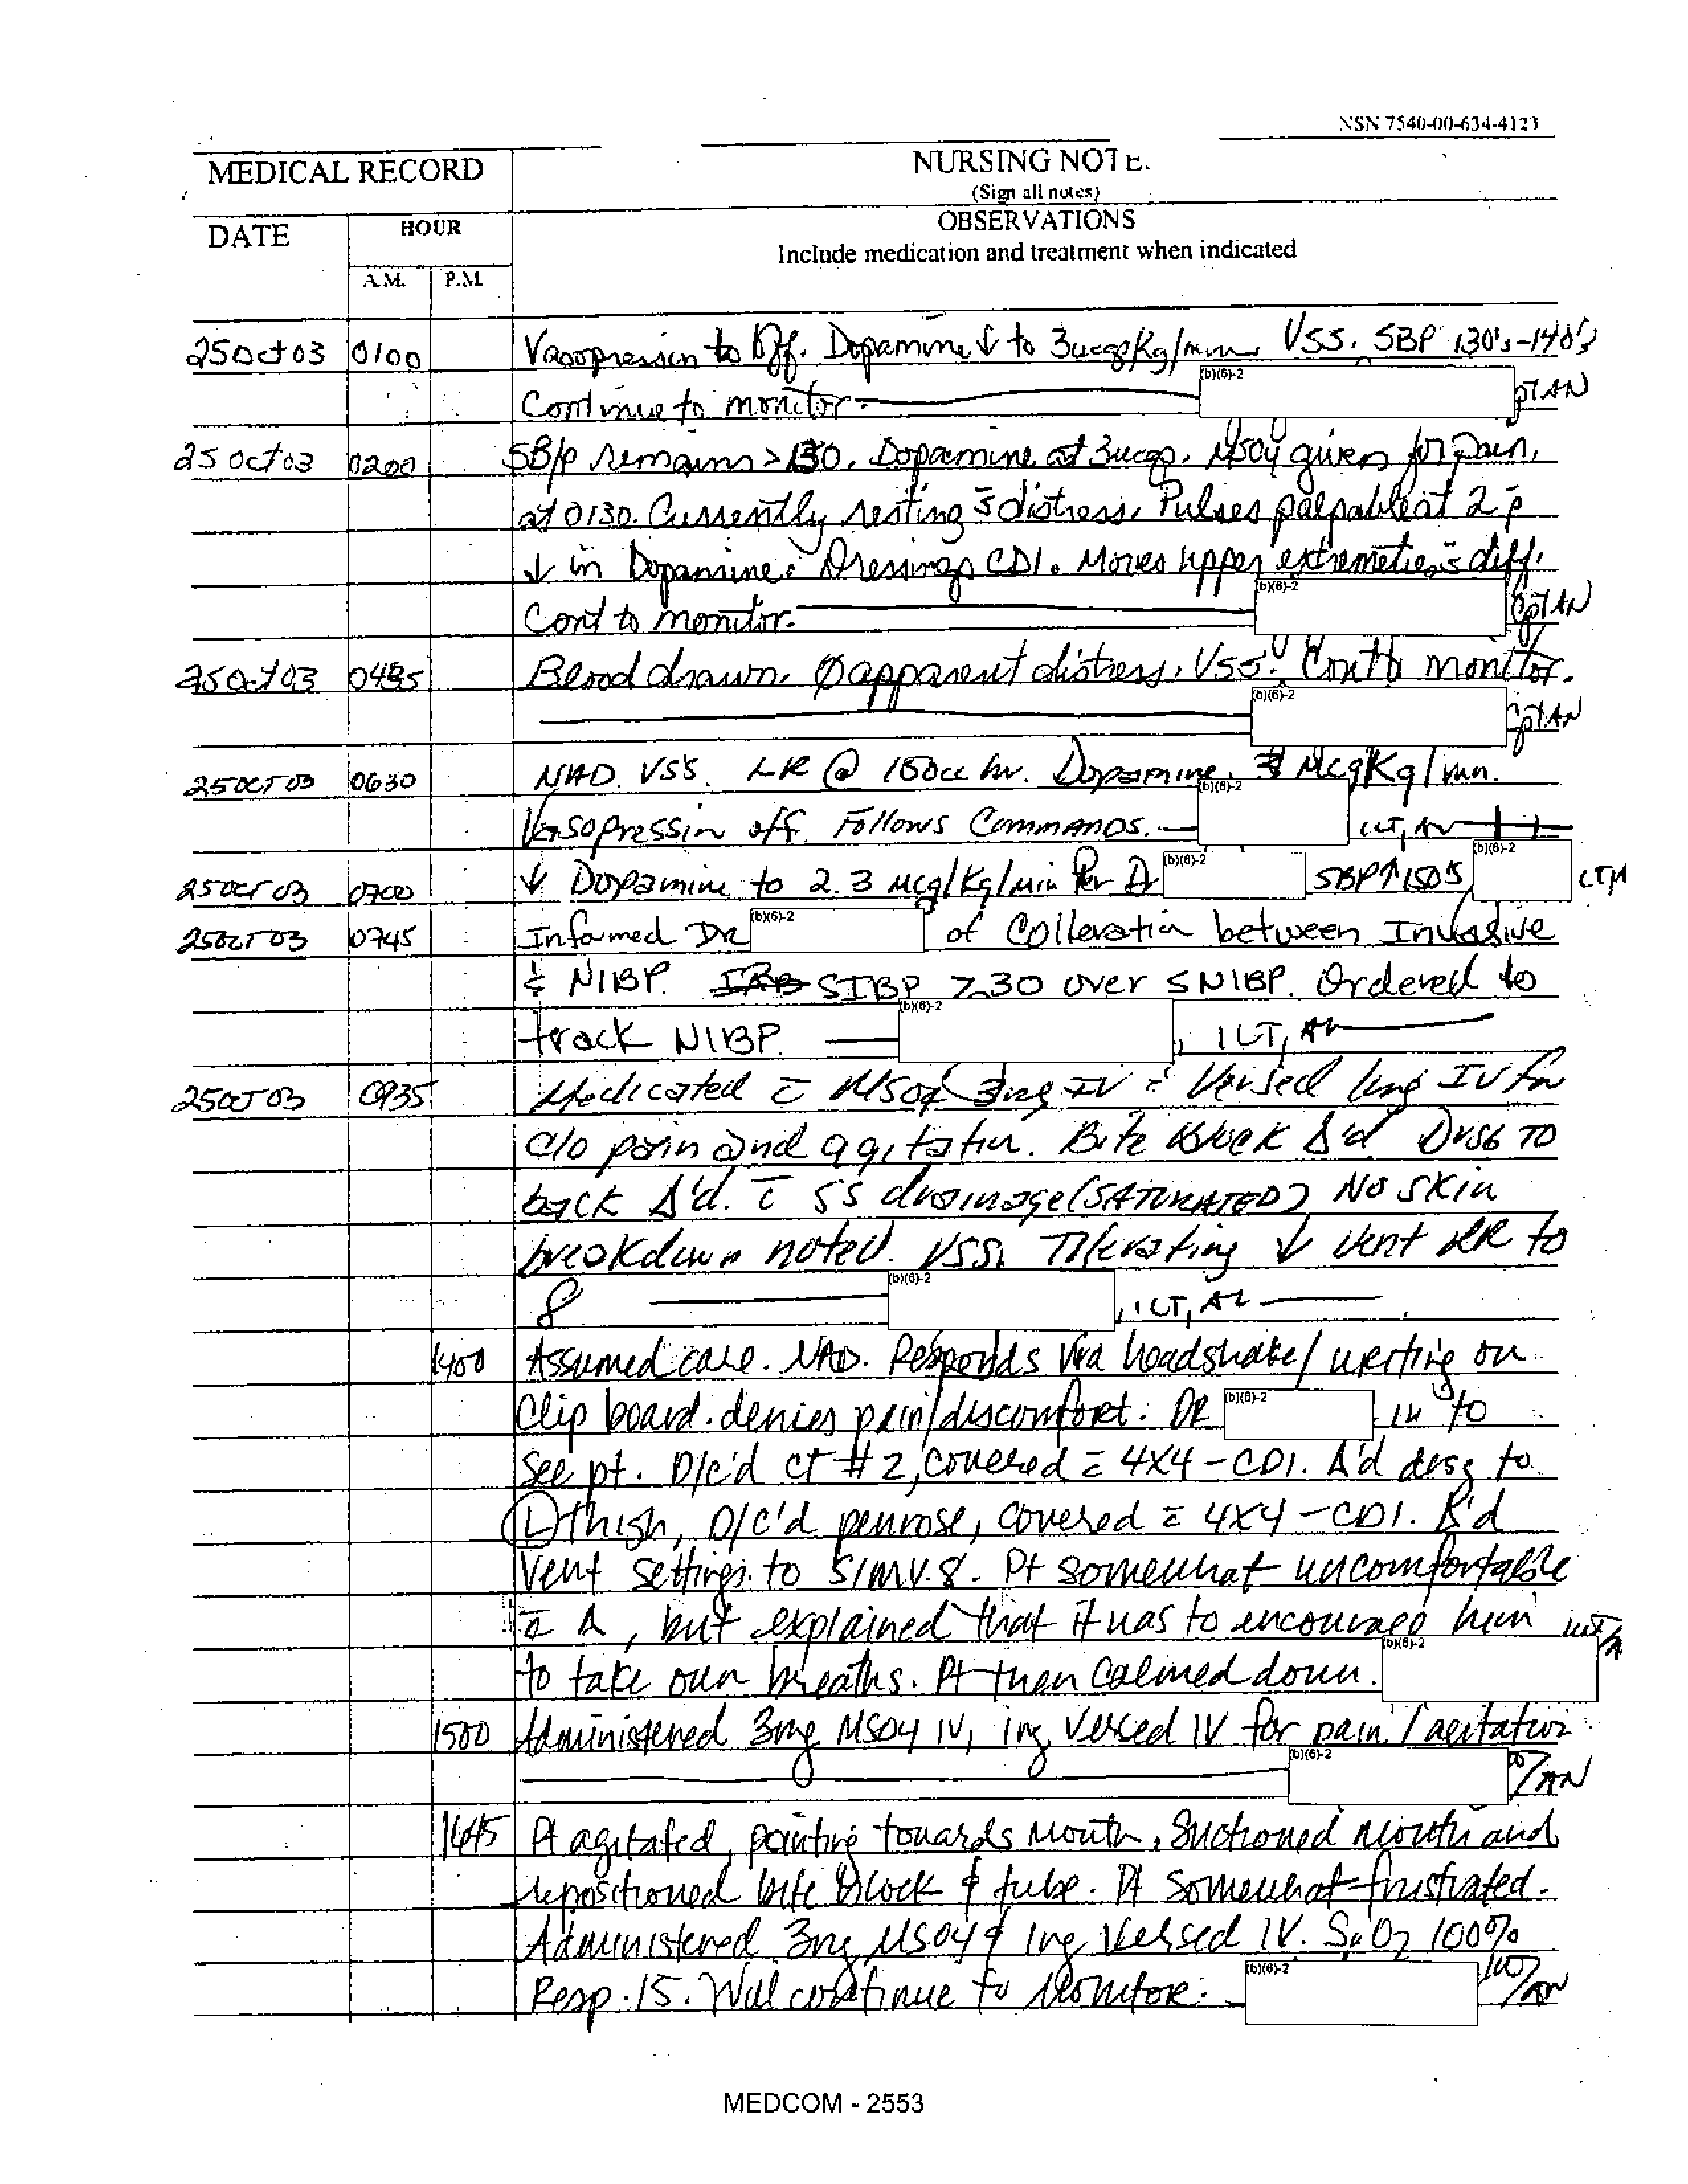 NSN 7540-00-634-4123
MEDICAL RECORD
NURSING NOTE.
(Sign all notes)
DATE
HOUR
OBSERVATIONS
Include medication and treatment when indicated
A.M. P.M.
25 Oct 03 0100 Vasopressin to Off. Dopamine ↓ to 3ucgs/Kg/min. VSS. SBP 130's-140's
Continue to monitor. (b)(6)-2 CPT AN
25 Oct 03 0200 SB/p remains > 130. Dopamine at 3ucgs. MSO4 given for pain,
at 0130. Currently resting s̄ distress. Pulses palpable at 2 p̄
↓ in Dopamine. Dressings CDI. Moves upper extremeties s̄ diff.
Cont to monitor. (b)(6)-2 CPT AN
25 Oct 03 Blood drawn. Ø apparent distress. VSS. Cont to monitor.
(b)(6)-2 CPT AN
25 OCT 03 0630 NAD. VSS. LR @ 150cc hr. Dopamine. 3 Mcg Kg/min.
Vasopressin off. Follows Commands. (b)(6)-2 1LT, AN
25 OCT 03 0700 ↓ Dopamine to 2.3 mcg/Kg/min Per Dr (b)(6)-2 SBP ↑ 150's (b)(6)-2 LTA
25 OCT 03 0745 Informed Dr (b)(6)-2 of Colleration between Invasive
& NIBP. SIBP >30 over SNIBP. Ordered to
track NIBP. (b)(6)-2, 1LT, AN
25 OCT 03 0935 Medicated c̄ MSO4 3mg IV & Versed 1mg IV for
c/o pain and agitation. Bite block Δ'd. Drsg TO
back Δ'd. c̄ SS drainage (SATURATED) No skin
breakdown noted. VSS. Tolerating ↓ Vent RR to
8 (b)(6)-2, 1LT, AN
1400 Assumed care. NAD. Responds via headshake/ writing on
clip board. denies pain/discomfort. DR (b)(6)-2 in to
see pt. D/c'd CT #2, covered c̄ 4x4 - CDI. Δ'd drsg to
(L) thigh, D/c'd penrose, covered c̄ 4x4 - CDI. Δ'd
vent settings to SIMV.8. Pt somewhat uncomfortable
c̄ Δ, but explained that it was to encourage him
to take own breaths. Pt then calmed down. (b)(6)-2 1LT/A
1500 Administered 3mg MSO4 IV, 1mg Versed IV for pain/agitation
(b)(6)-2 /AN
1645 Pt agitated, pointing towards mouth. Suctioned mouth and
repositioned bite block & tube. Pt somewhat frustrated.
Administered 3mg MSO4 & 1mg Versed IV. SaO2 100%
Resp. 15. Will continue to monitor. (b)(6)-2 1LT/AN
MEDCOM - 2553